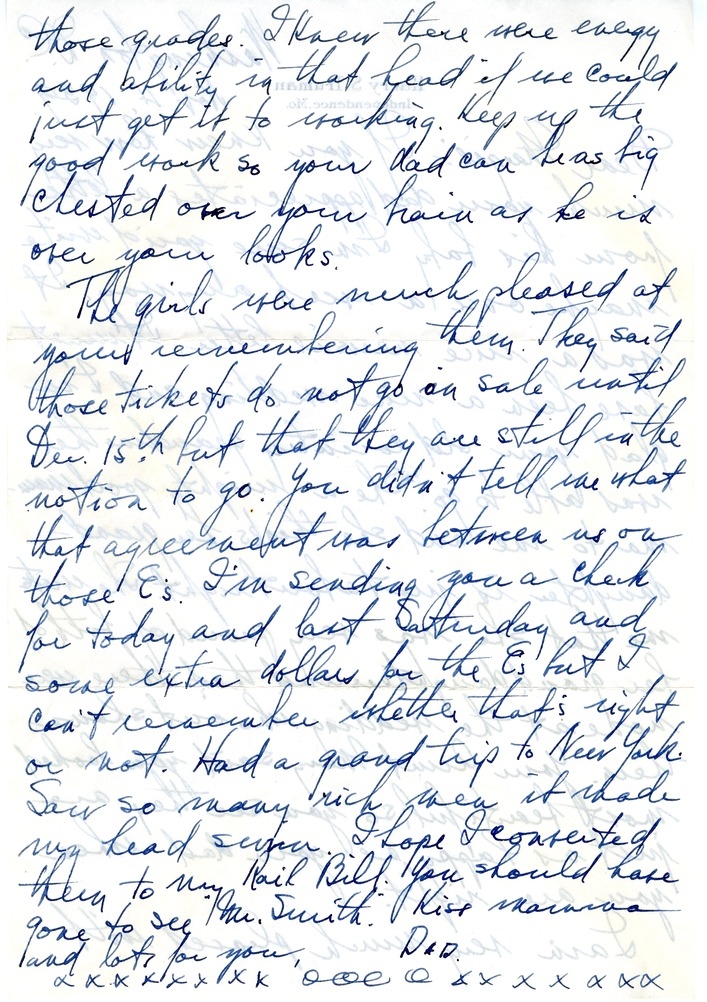 those grades. I knew there were energy
and ability in that head if we could
just get it to working. Keep up the
good work so your dad can be as big
chested over your brain as he is
over your looks.
The girls were much pleased at
your remembering them. They said
those tickets do not go on sale until
Dec. 15th but that they are still in the
notion to go. You didn't tell me what
that agreement was between us on
those E's. I'm sending you a check
for today and last Saturday and
some extra dollars for the E's but I
can't remember whether that's right
or not. Had a grand trip to New York.
Saw so many rich men it made
my head swim. I hope I converted
them to my Rail Bill. You should have
gone to see "Mr. Smith." Kiss mamma
and lots for you,
Dad.
x x x x x x x x o o o o o x x x x x x x
Harry S. Truman
Independence, Mo.